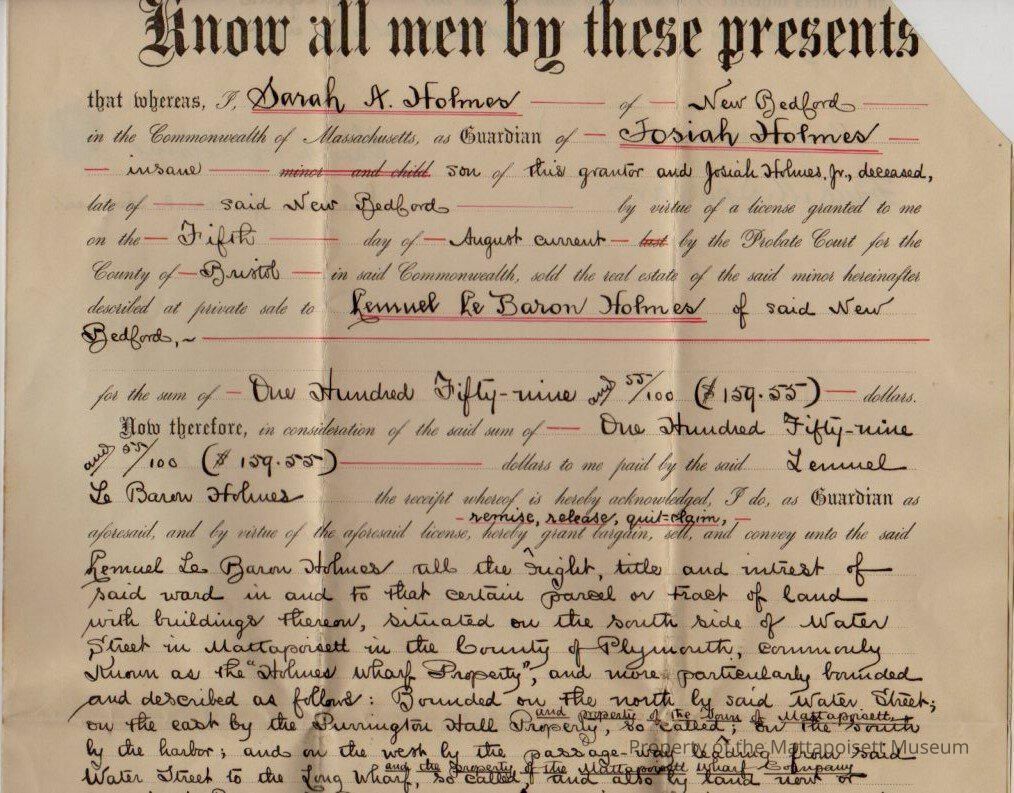 Know all men by these presents
that whereas, I, Sarah A. Holmes of New Bedford
in the Commonwealth of Massachusetts, as Guardian of Josiah Holmes
insane minor and child son of this grantor and Josiah Holmes, Jr., deceased,
late of said New Bedford by virtue of a license granted to me
on the Fifth day of August current last by the Probate Court for the
County of Bristol in said Commonwealth, sold the real estate of the said minor hereinafter
described at private sale to Lemuel Le Baron Holmes of said New
Bedford,~
for the sum of One Hundred Fifty-nine and 55/100 ($159.55) dollars.
Now therefore, in consideration of the said sum of One Hundred Fifty-nine
and 55/100 ($159.55) dollars to me paid by the said Lemuel
Le Baron Holmes the receipt whereof is hereby acknowledged, I do, as Guardian as
- remise, release, quit=claim, -
aforesaid, and by virtue of the aforesaid license, hereby grant bargain, sell, and convey unto the said
Lemuel Le Baron Holmes all the right, title and intrest of
said ward in and to that certain parcel or tract of land
with buildings thereon, situated on the south side of Water
Street in Mattapoisett in the County of Plymouth, commonly
Known as the "Holmes Wharf Property", and more particularly bounded
and described as follows: Bounded on the north by said Water Street;
and property of the Town of Mattapoisett
on the east by the Purrington Hall Property, so called; on the south
by the harbor; and on the west by the passage-way leading from said
and the property of the Mattapoisett Wharf Company
Water Street to the Long Wharf, so called, and also by land now or
Property of the Mattapoisett Museum